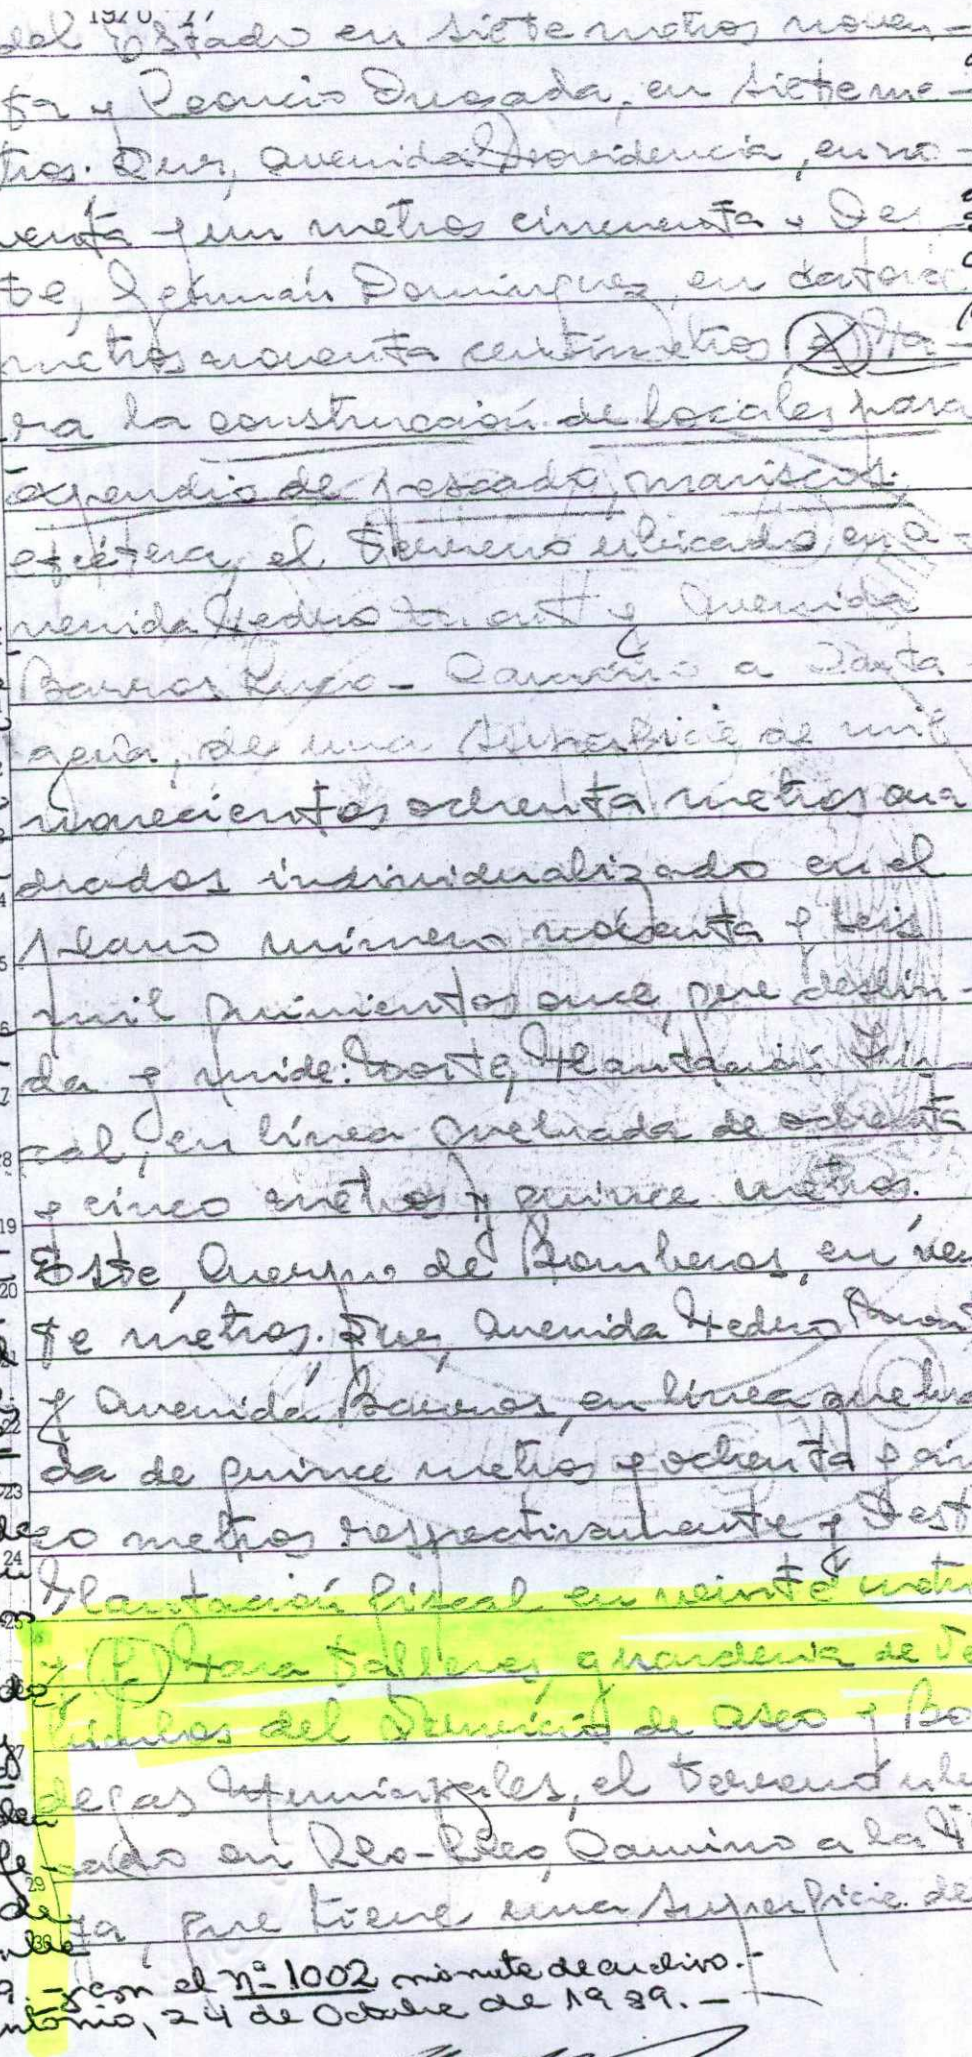 1970 77
del Estado en siete metros noven-
ta y Leoncio Quezada, en siete me-
tros. Sur, Avenida Providencia, en no-
venta y un metros cincuenta y Oes
te, Germán Domínguez, en catorce
metros noventa centímetros Pa-
ra la construcción de locales para
expendio de pescado, mariscos,
etcétera, el terreno ubicado en A-
venida Pedro Montt y Avenida
Barros Luco - Camino a Carta
gena, de una superficie de mil
novecientos ochenta metros cua
drados individualizado en el
plano número noventa y seis
mil quinientos once, que deslin-
da y mide: Norte, Plantación Fis-
cal, en línea quebrada de ochenta
y cinco metros y quince metros.
Este, Cuerpo de Bomberos, en vein
te metros. Sur, Avenida Pedro Montt
y Avenida Barros, en línea quebra
da de quince metros y ochenta y cin
co metros respectivamente y Oeste
Plantación fiscal en veinte metros
y Para talleres, guardería de ve
hículos del Servicio de Aseo y Bo
degas Municipales, el terreno ubi
cado en Llo-Lleo, Camino a la
ta, que tiene una superficie de
19
20
21
22
23
24
25
27
28
29
30
con el nº 1002 minuta de archivo.-
ntonio, 24 de Octubre de 1989.-